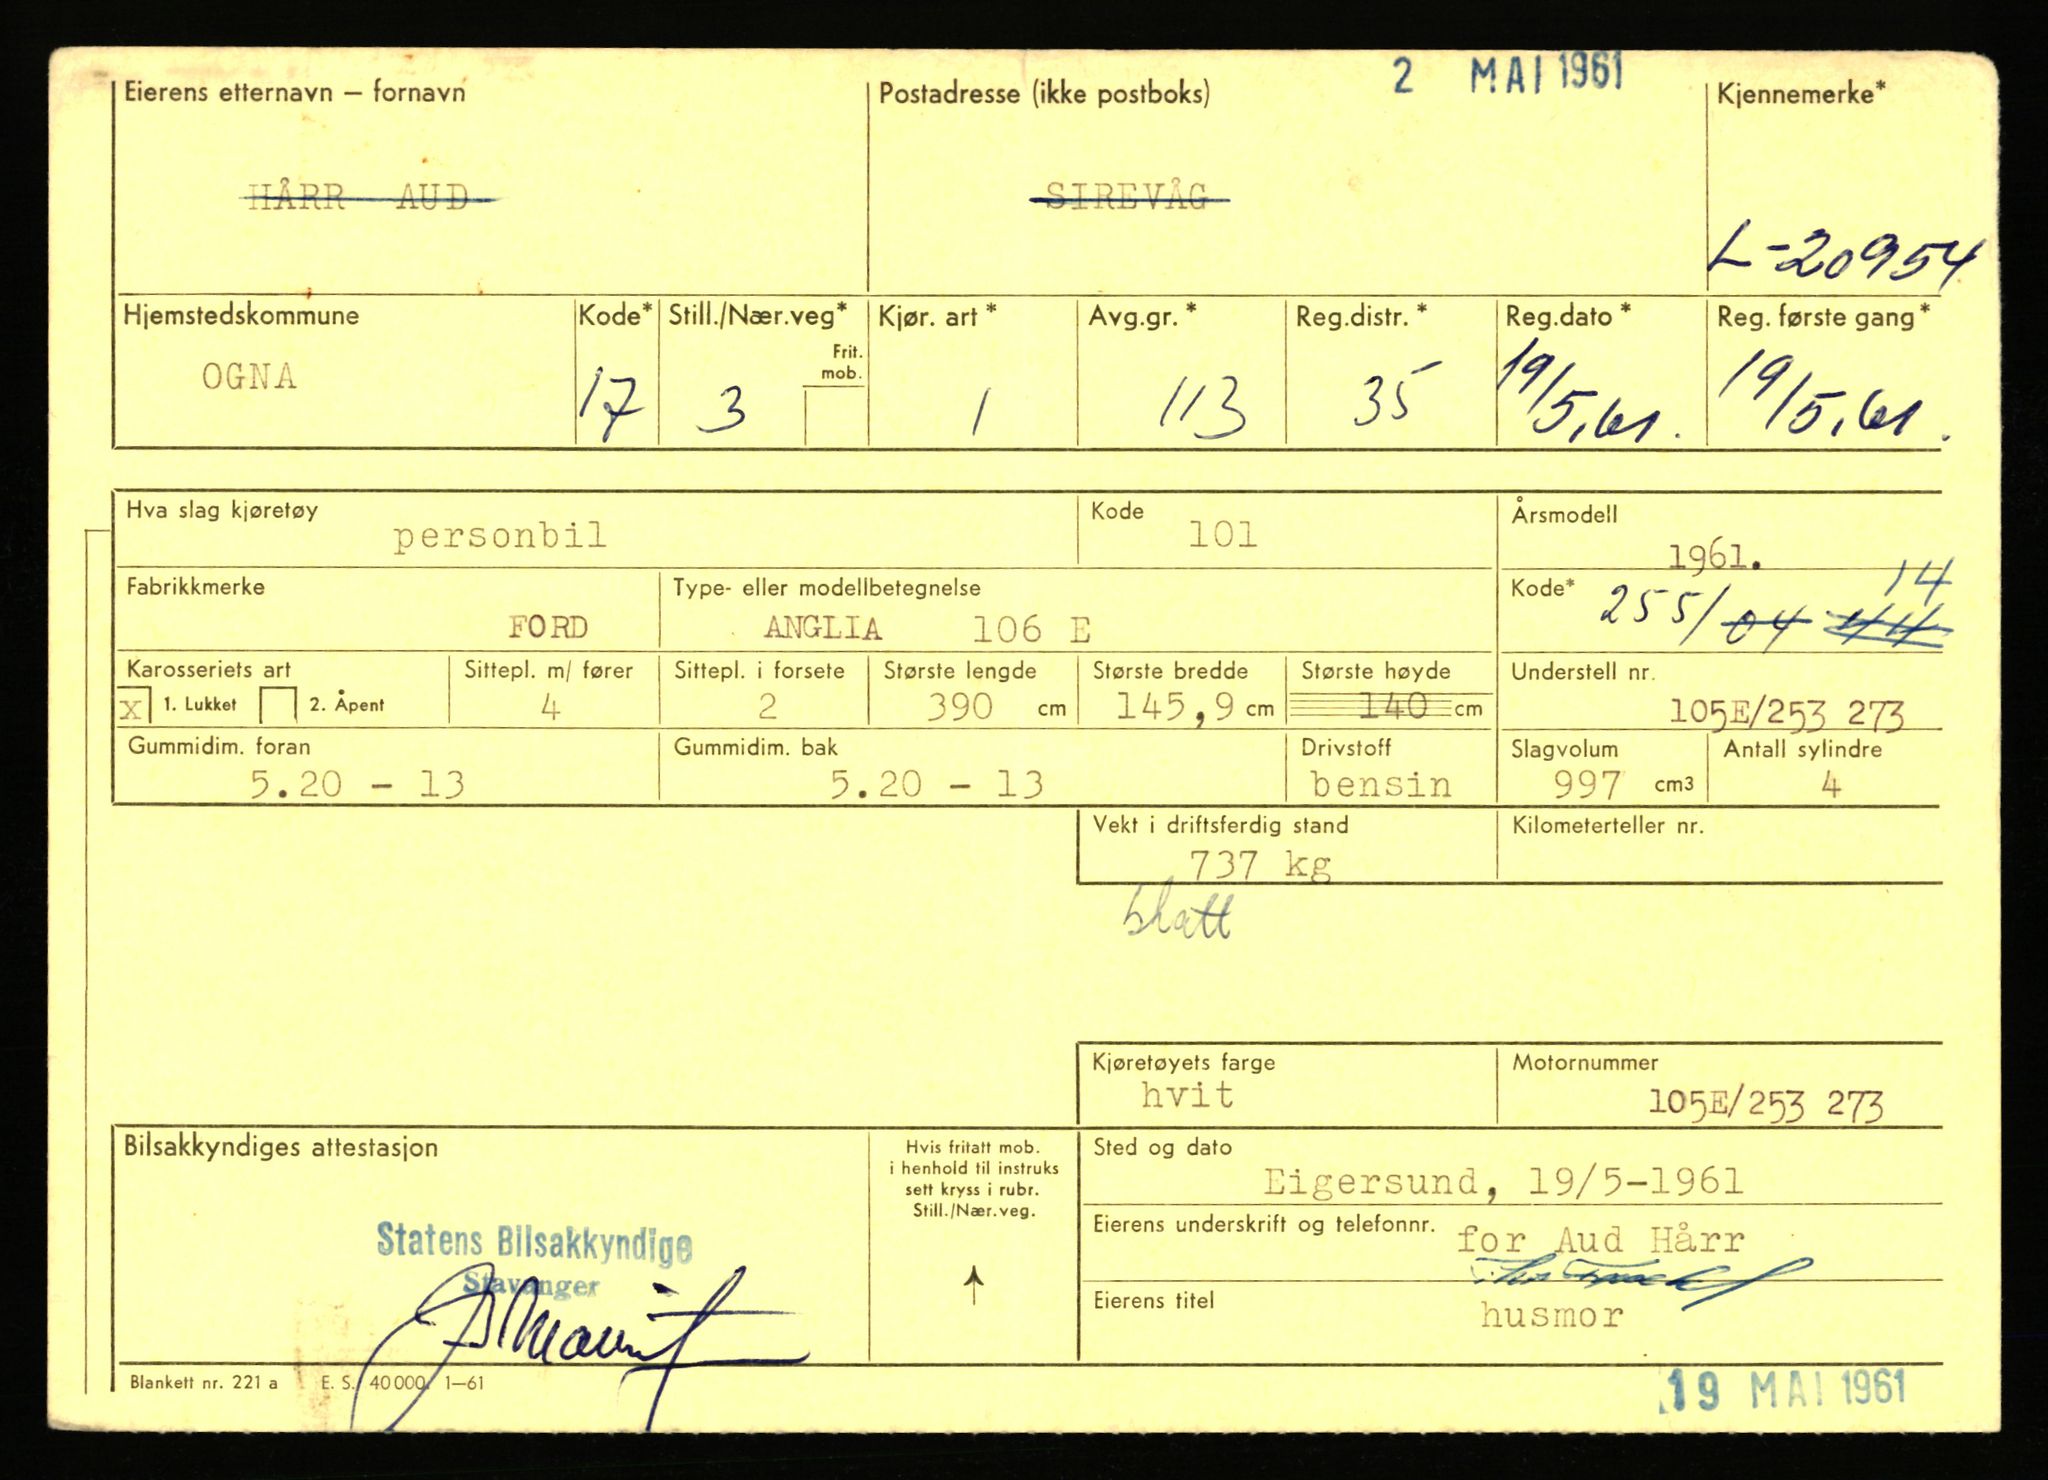 2 MAI 1961
Eierens etternavn – fornavn
Postadresse (ikke postboks)
Kjennemerke*
HÅRR AUD
SIREVÅG
L-20954
Hjemstedskommune
Kode*
Still./Nær.veg*
Kjør. art *
Avg.gr. *
Reg.distr. *
Reg.dato *
Reg. første gang*
Frit.
mob.
OGNA
17
3
1
113
35
19/5.61.
19/5.61.
Hva slag kjøretøy
personbil
Kode
101
Årsmodell
1961.
Fabrikkmerke
FORD
Type- eller modellbetegnelse
ANGLIA 106 E
Kode*
255/04 44 14
Karosseriets art
x 1. Lukket 2. Åpent
Sittepl. m/ fører
4
Sittepl. i forsete
2
Største lengde
390 cm
Største bredde
145,9 cm
Største høyde
140 cm
Understell nr.
105E/253 273
Gummidim. foran
5.20 - 13
Gummidim. bak
5.20 - 13
Drivstoff
bensin
Slagvolum
997 cm3
Antall sylindre
4
Vekt i driftsferdig stand
737 kg
Kilometerteller nr.
blått
Kjøretøyets farge
hvit
Motornummer
105E/253 273
Bilsakkyndiges attestasjon
Statens Bilsakkyndige
Stavanger
Hvis fritatt mob.
i henhold til instruks
sett kryss i rubr.
Still./Nær.veg.
Sted og dato
Eigersund, 19/5-1961
Eierens underskrift og telefonnr.
for Aud Hårr
Eierens titel
husmor
Blankett nr. 221 a E. S. 40 000. 1–61
19 MAI 1961